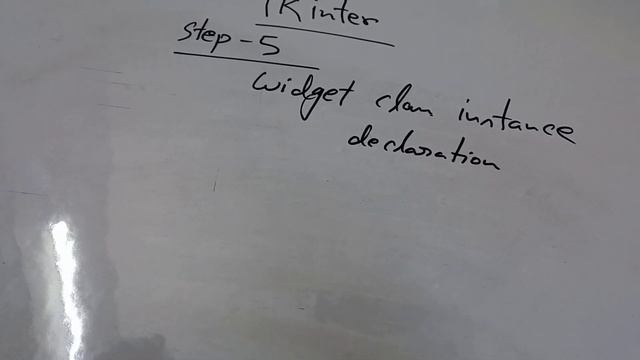 TKinter
step-5
widget class instance
declaration